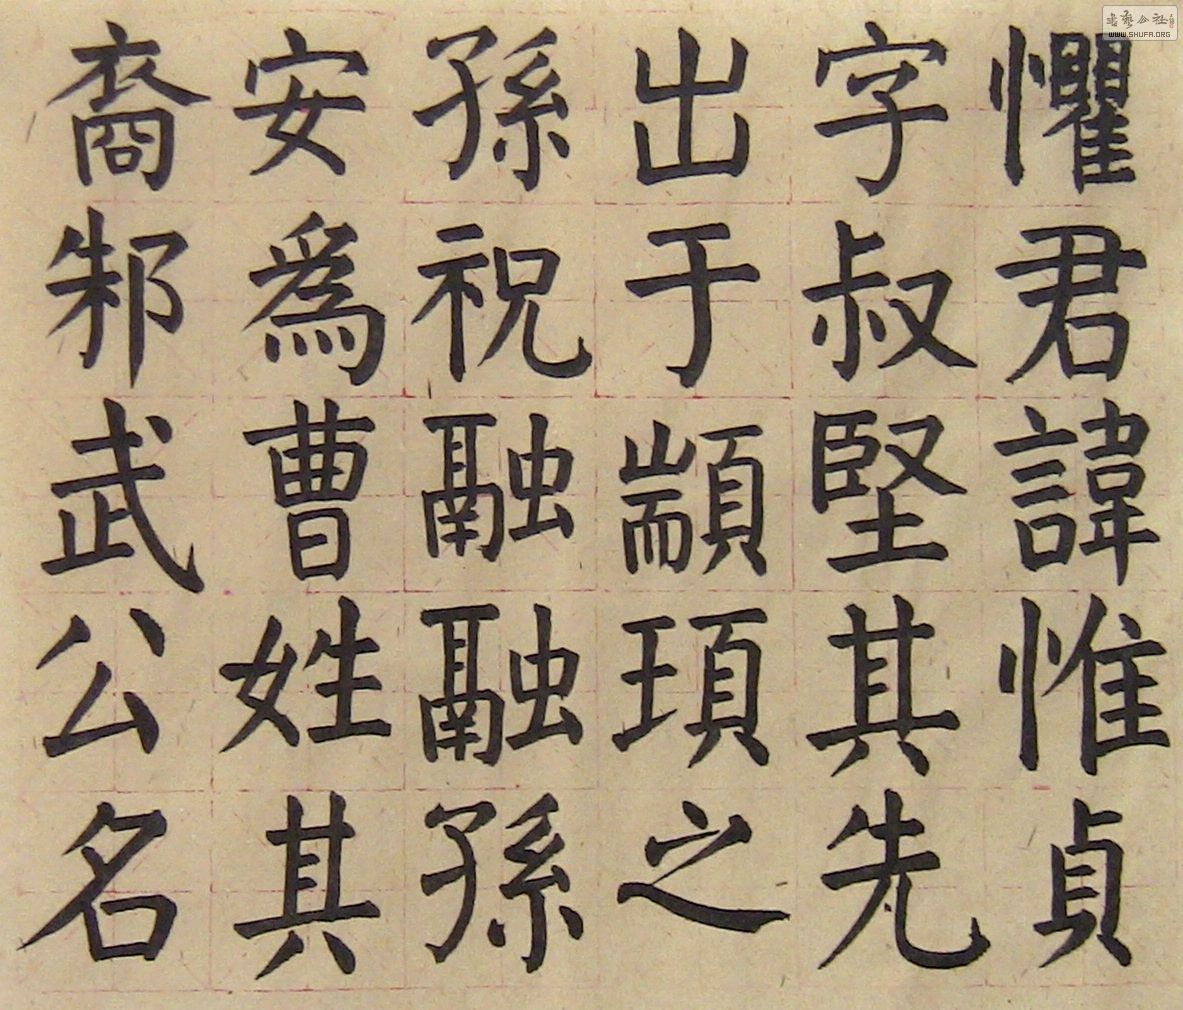 懼君諱惟貞
字叔堅其先
出于顓頊之
孫祝融融孫
安為曹姓其
裔邾武公名
書藝公社
WWW.SHUFA.ORG